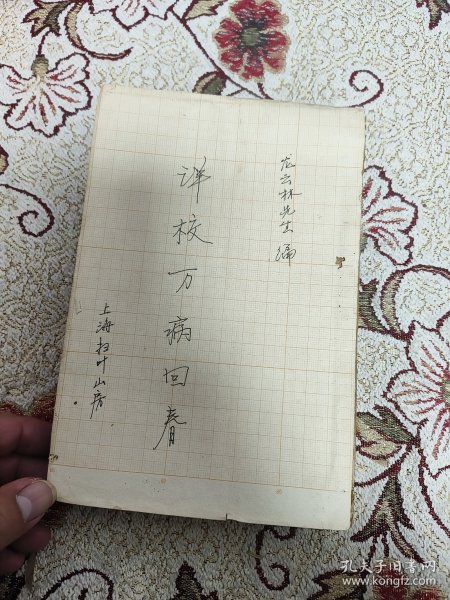 龙云林先生编
详校万病回春
上海扫叶山房
孔夫子旧书网
www.kongfz.com